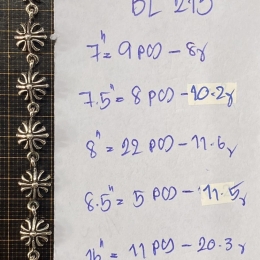 BL 215
7" = 9 PCS - 8g
7.5" = 8 PCS - 10.2g
8" = 22 PCS - 11.6g
8.5" = 5 PCS - 11.5g
16" = 11 PCS - 20.3g